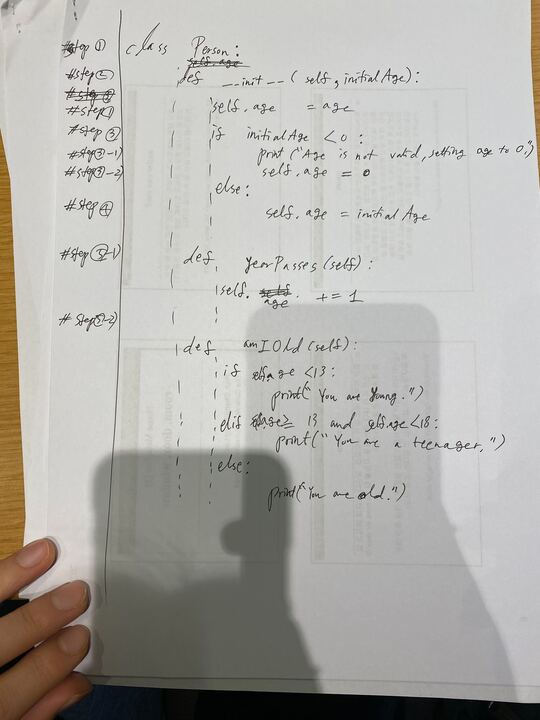 #step ① class Person:
#step ② def __init__(self, initialAge):
#step ① self.age = age
#step ③ if initialAge < 0 :
#step ③-1) print ("Age is not valid, setting age to 0.")
#step ③-2) self.age = 0
else:
#step ④ self.age = initialAge
#step ⑤-1) def yearPasses(self):
self. age += 1
def amIOld(self):
if self.age < 13 :
print("You are young.")
elif self.age ≥ 13 and self.age < 18 :
print("You are a teenager.")
else:
print("You are old.")